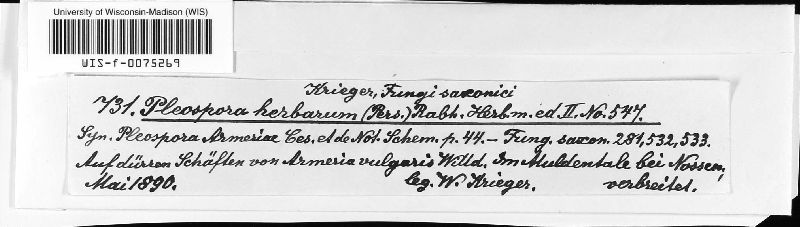 University of Wisconsin-Madison (WIS)
WIS-f-0075269
Krieger, Fungi saxonici
731. Pleospora herbarum (Pers.) Rabh. Herb. m. ed. II. No. 547.
Syn. Pleospora Armeriae Ces. et de Not. Schem. p. 44. – Fung. saxon. 281, 532, 533.
Auf dürren Schäften von Armeria vulgaris Willd. Im Muldentale bei Nossen,
Mai 1890. leg. W. Krieger. verbreitet.